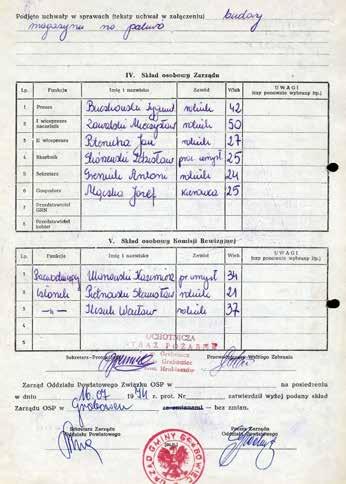 Podjęto uchwały w sprawach (teksty uchwał w załączeniu) budowy
magazynu na paliwo
IV. Skład osobowy Zarządu
Lp. Funkcja Imię i nazwisko Zawód Wiek UWAGI
(czy ponownie wybrany itp.)
1 Prezes Zygmunt rolnik 42
2 I wiceprezes naczelnik Kowalski Mieczysław rolnik 50
3 II wiceprezes Jan rolnik 27
4 Skarbnik Zdzisław prac. umysł 25
5 Sekretarz Antoni rolnik 24
6 Gospodarz Józef kierowca 25
7 Przedstawiciel GRN
8 Przedstawiciel kobiet
V. Skład osobowy Komisji Rewizyjnej
Lp. Funkcja Imię i nazwisko Zawód Wiek UWAGI
(czy ponownie wybrany itp.)
1 Przewodniczący Ulanowski Kazimierz pr umysł 34
2 Członek Stanisław rolnik 21
3 -"- Wacław rolnik 37
4
5
OCHOTNICZA
STRAŻ POŻARNA
Sekretarz Przewodniczący Walnego Zebrania
Zarząd Oddziału Powiatowego Związku OSP w na posiedzeniu
w dniu 16.07 1974 r. prot. Nr zatwierdził wyżej podany skład
Zarządu OSP w Grabowcu ze zmianami — bez zmian.
Sekretarz Zarządu Prezes Zarządu
Oddziału Powiatowego Oddziału Powiatowego
URZĄD GMINY GRABOWIEC